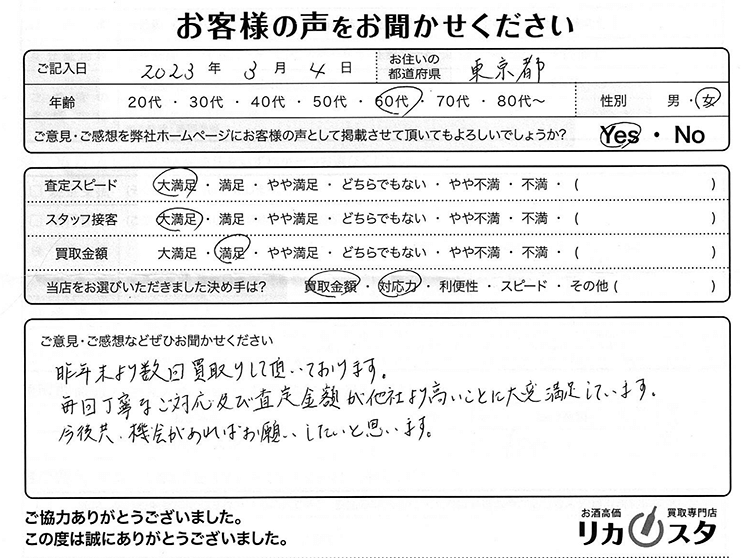 お客様の声をお聞かせください
ご記入日 2023 年 3 月 4 日 お住いの都道府県 東京都
年齢 20代 ・ 30代 ・ 40代 ・ 50代 ・ 60代 ・ 70代 ・ 80代〜 性別 男 ・ 女
ご意見・ご感想を弊社ホームページにお客様の声として掲載させて頂いてもよろしいでしょうか? Yes ・ No
査定スピード 大満足 ・ 満足 ・ やや満足 ・ どちらでもない ・ やや不満 ・ 不満 ・ ( )
スタッフ接客 大満足 ・ 満足 ・ やや満足 ・ どちらでもない ・ やや不満 ・ 不満 ・ ( )
買取金額 大満足 ・ 満足 ・ やや満足 ・ どちらでもない ・ やや不満 ・ 不満 ・ ( )
当店をお選びいただきました決め手は? 買取金額 ・ 対応力 ・ 利便性 ・ スピード ・ その他 ( )
ご意見・ご感想などぜひお聞かせください
昨年末より数回買取りして頂いております。
毎回丁寧なご対応及び査定金額が他社より高いことに大変満足しています。
今後共、機会があればお願いしたいと思います。
ご協力ありがとうございました。
この度は誠にありがとうございました。
お酒高価 買取専門店
リカスタ